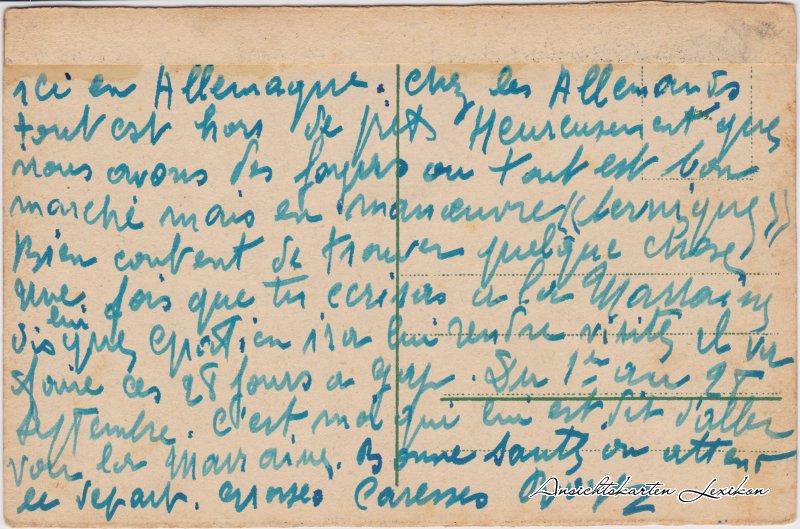 ici en Allemagne. chez les Allemands
tout est hors de prix Heureusement que
nous avons des foyers ou tout est bon
marché mais en manœuvre "bernique"
Bien content de trouver quelque chose
Une fois que tu ecriras a la Marraine
dis lui que ira lui rendre visite il va
faire ces 28 jours a Gap. Du 1er au 28
Septembre. C'est moi qui lui est dit d'aller
voir la Marraine. Bonne santé on attend
le depart. Grosses Caresses
Ansichtskarten Lexikon